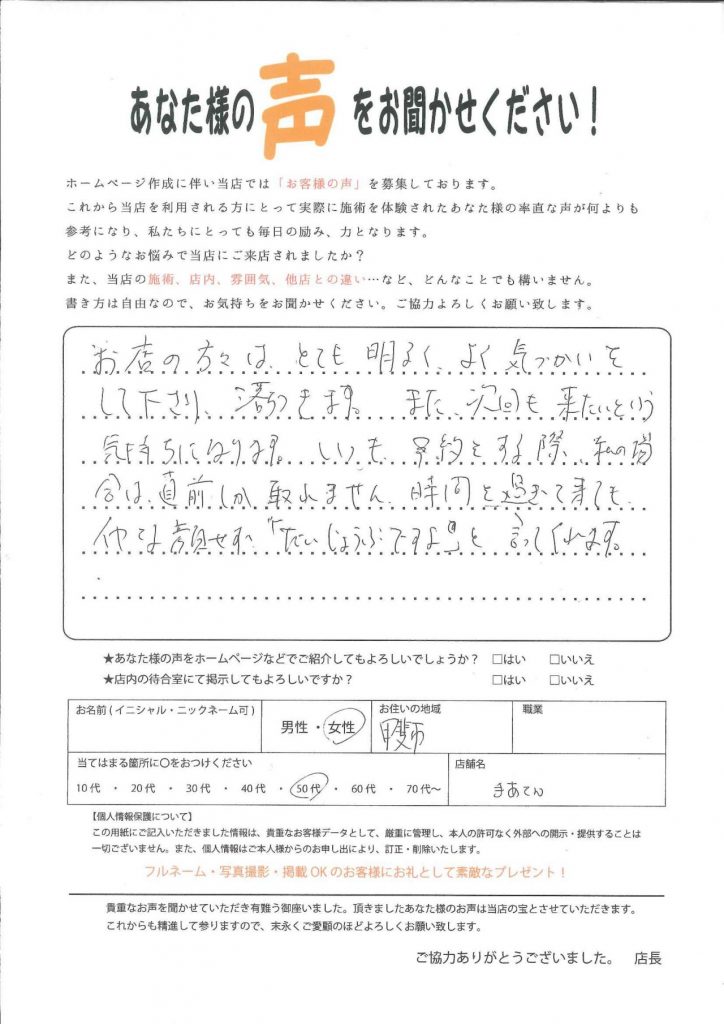 あなた様の声をお聞かせください！
ホームページ作成に伴い当店では「お客様の声」を募集しております。
これから当店を利用される方にとって実際に施術を体験されたあなた様の率直な声が何よりも
参考になり、私たちにとっても毎日の励み、力となります。
どのようなお悩みで当店にご来店されましたか？
また、当店の施術、店内、雰囲気、他店との違い…など、どんなことでも構いません。
書き方は自由なので、お気持ちをお聞かせください。ご協力よろしくお願い致します。
お店の方々は、とても明るく、よく気づかいを
して下さり、落ちつきます。また、次回も来たいという
気持ちになります。いつも、予約をする際、私の場
合は、直前しか取れません。時間を過ぎて来ても、
イヤな顔せず「だいじょうぶですよ」と言ってくれます。
★あなた様の声をホームページなどでご紹介してもよろしいでしょうか？ □はい □いいえ
★店内の待合室にて掲示してもよろしいですか？ □はい □いいえ
お名前（イニシャル・ニックネーム可） 男性・女性 お住いの地域 甲斐市 職業
当てはまる箇所に〇をおつけください 店舗名
10代 ・ 20代 ・ 30代 ・ 40代 ・ 50代 ・ 60代 ・ 70代〜 きあてん
【個人情報保護について】
この用紙にご記入いただきました情報は、貴重なお客様データとして、厳重に管理し、本人の許可なく外部への開示・提供することは
一切ございません。また、個人情報はご本人様からのお申し出により、訂正・削除いたします。
フルネーム・写真撮影・掲載OKのお客様にお礼として素敵なプレゼント！
貴重なお声を聞かせていただき有難う御座いました。頂きましたあなた様のお声は当店の宝とさせていただきます。
これからも精進して参りますので、末永くご愛顧のほどよろしくお願い致します。
ご協力ありがとうございました。 店長